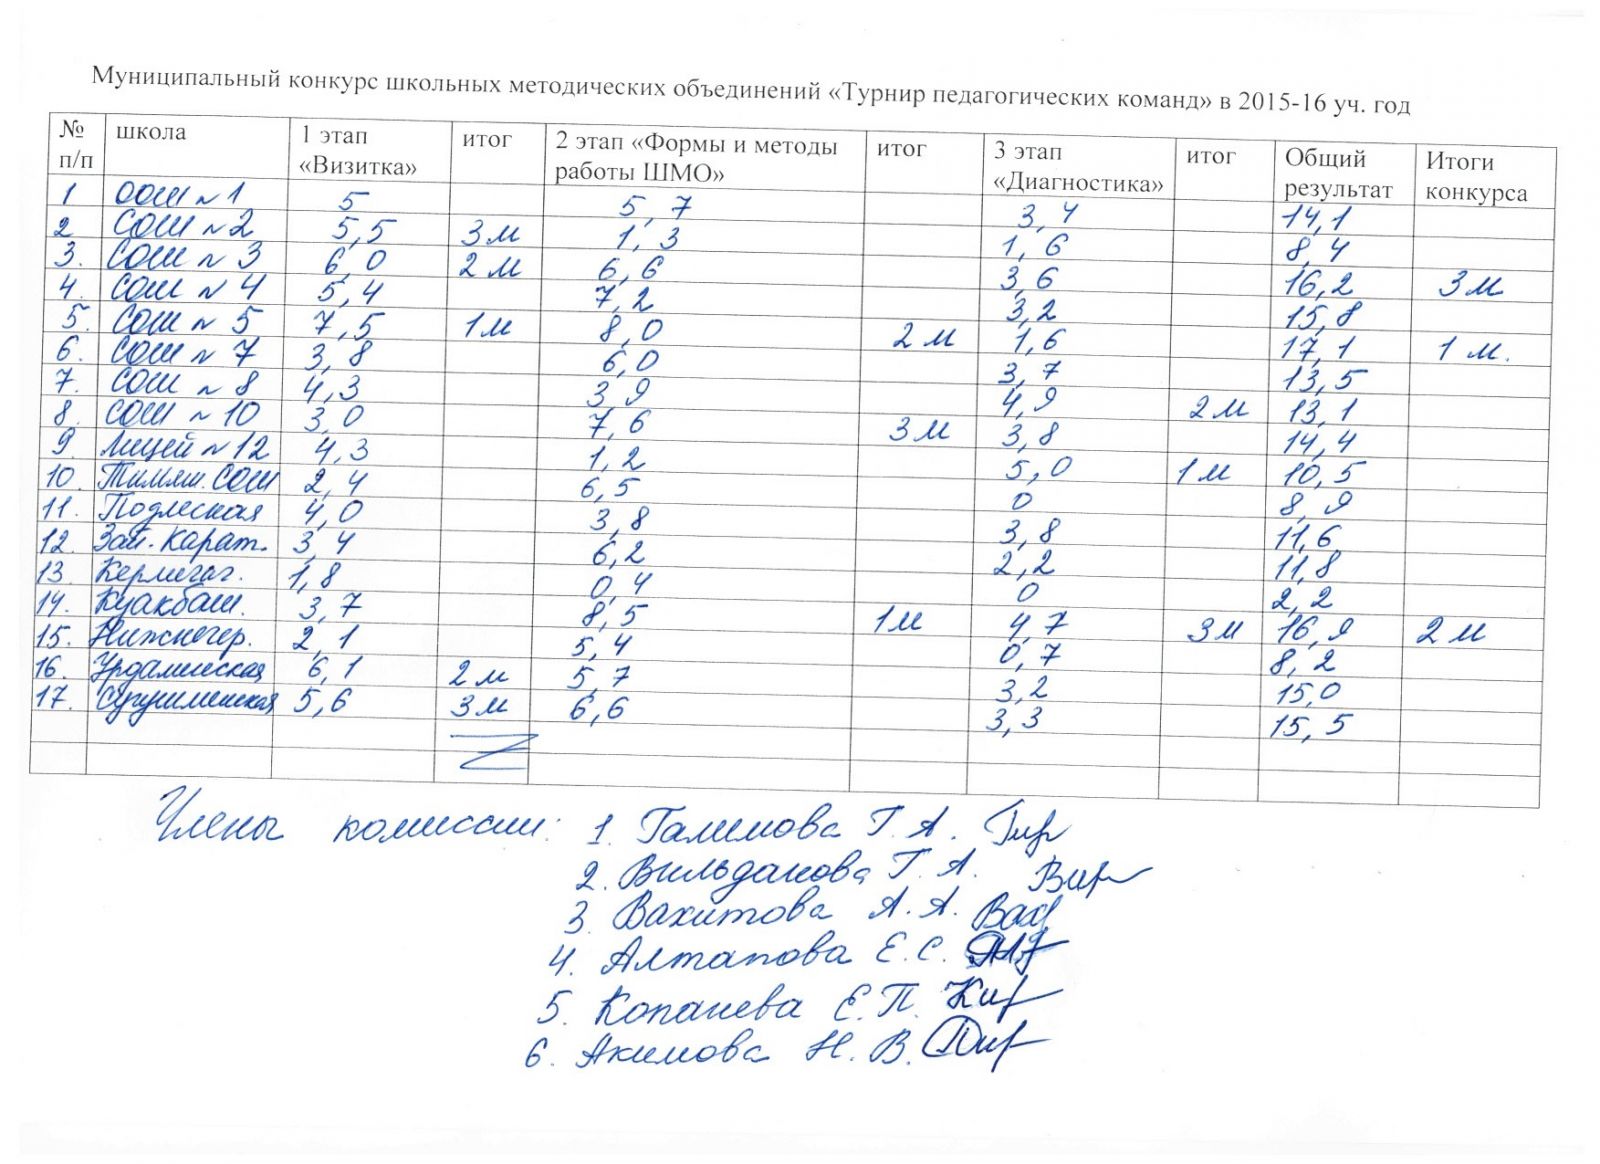 Муниципальный конкурс школьных методических объединений «Турнир педагогических команд» в 2015-16 уч. год
№ п/п школа 1 этап «Визитка» итог 2 этап «Формы и методы работы ШМО» итог 3 этап «Диагностика» итог Общий результат Итоги конкурса
1 ООШ №1 5 5,7 3,4 14,1
2 СОШ №2 5,5 3м 1,3 1,6 8,4
3. СОШ №3 6,0 2м 6,6 3,6 16,2 3м
4. СОШ №4 5,4 7,2 3,2 15,8
5. СОШ №5 7,5 1м 8,0 2м 1,6 17,1 1м.
6. СОШ №7 3,8 6,0 3,7 13,5
7. СОШ №8 4,3 3 9 4,9 2м 13,1
8. СОШ №10 3,0 7,6 3м 3,8 14,4
9. Лицей №12 4,3 1,2 5,0 1м 10,5
10. Тимяш. СОШ 2,4 6,5 0 8,9
11. Подлесная 4,0 3,8 3,8 11,6
12. Зай-Карат. 3,4 6,2 2,2 11,8
13. 1,8 0,4 0 2,2
14. Куакбаш. 3,7 8,5 1м 4,7 3м 16,9 2м
15. Нижнечер. 2,1 5,4 0,7 8,2
16. Урдалинская 6,1 2м 5,7 3,2 15,0
17. Сугушлинская 5,6 3м 6,6 3,3 15,5
Члены комиссии: 1. Галимова Г. А.
2. Вильданова Г. А.
3. Вахитова А. А.
4. Алтапова Е. С.
5. Копанева Е. П.
6. Акимова Н. В.